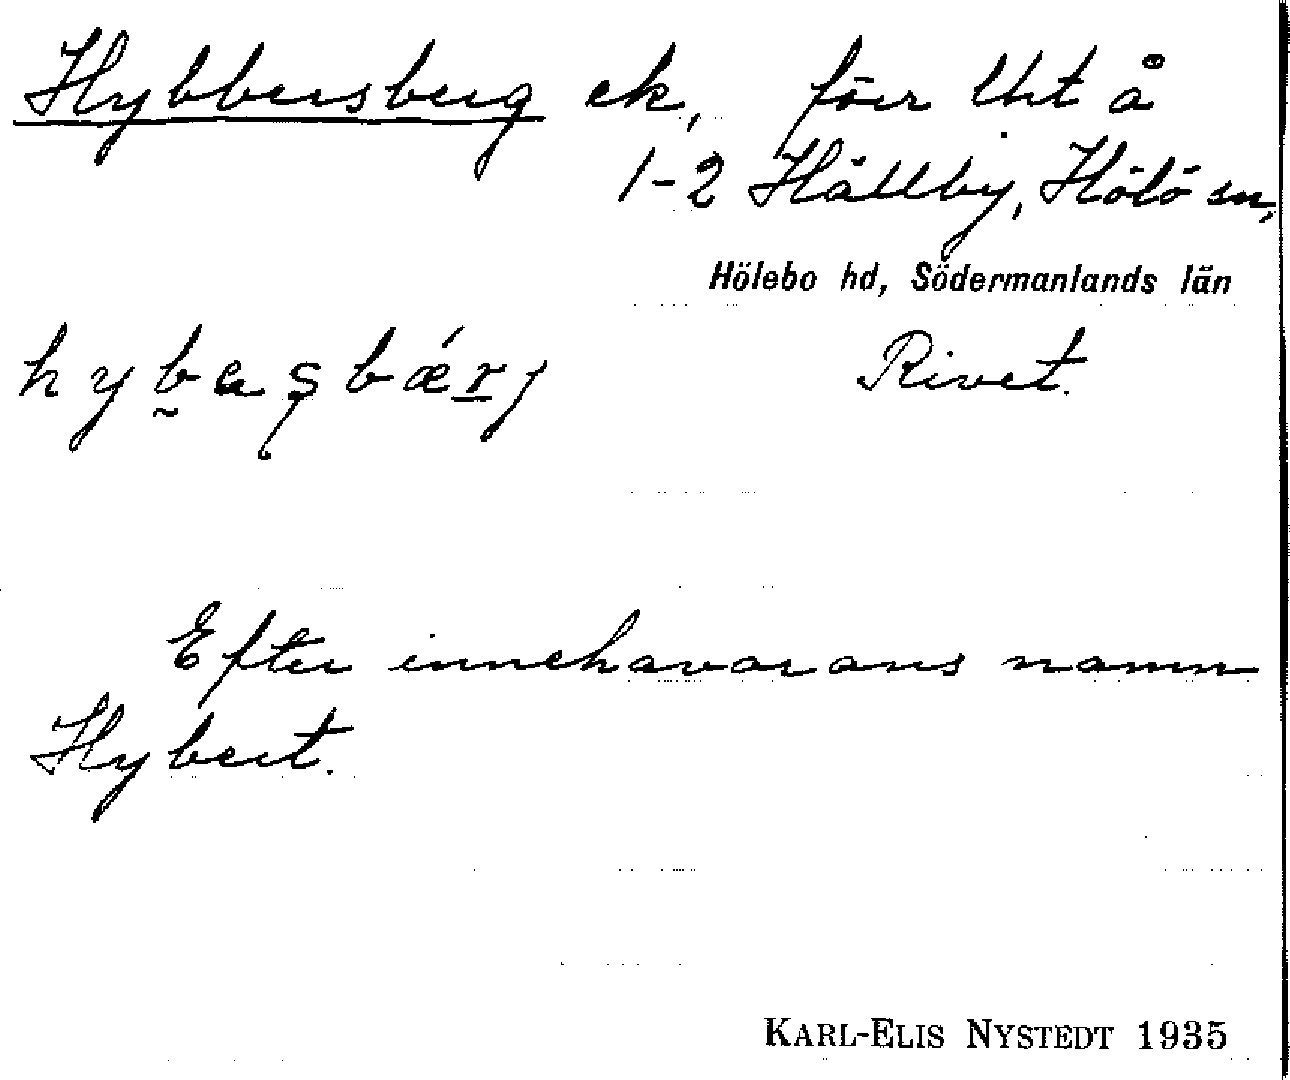 Hybbersberg ek, förr lht å
1-2 Hållby, Hölö sn,
Hölebo hd, Södermanlands län
hybaşbǽrj Rivet.
Efter innehavarans namn
Hybert.
KARL-ELIS NYSTEDT 1935